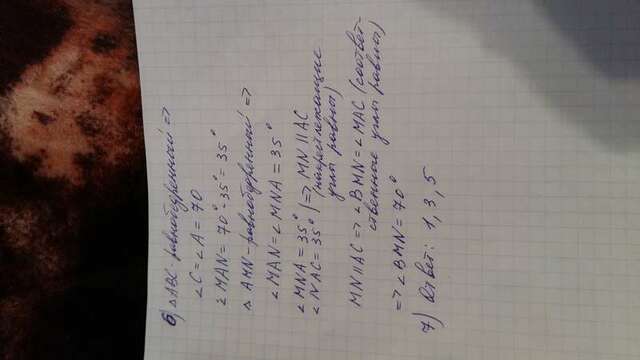 6) △ABC - равнобедренный =>
∠C = ∠A = 70
∠MAN = 70° - 35° = 35°
△ AMN - равнобедренный =>
∠MAN = ∠MNA = 35°
∠MNA = 35° | => MN || AC
∠NAC = 35° | (накрест лежащие
углы равны)
MN || AC => ∠BMN = ∠MAC (соответ-
ственные углы равны)
=> ∠BMN = 70°
7) Ответ: 1, 3, 5